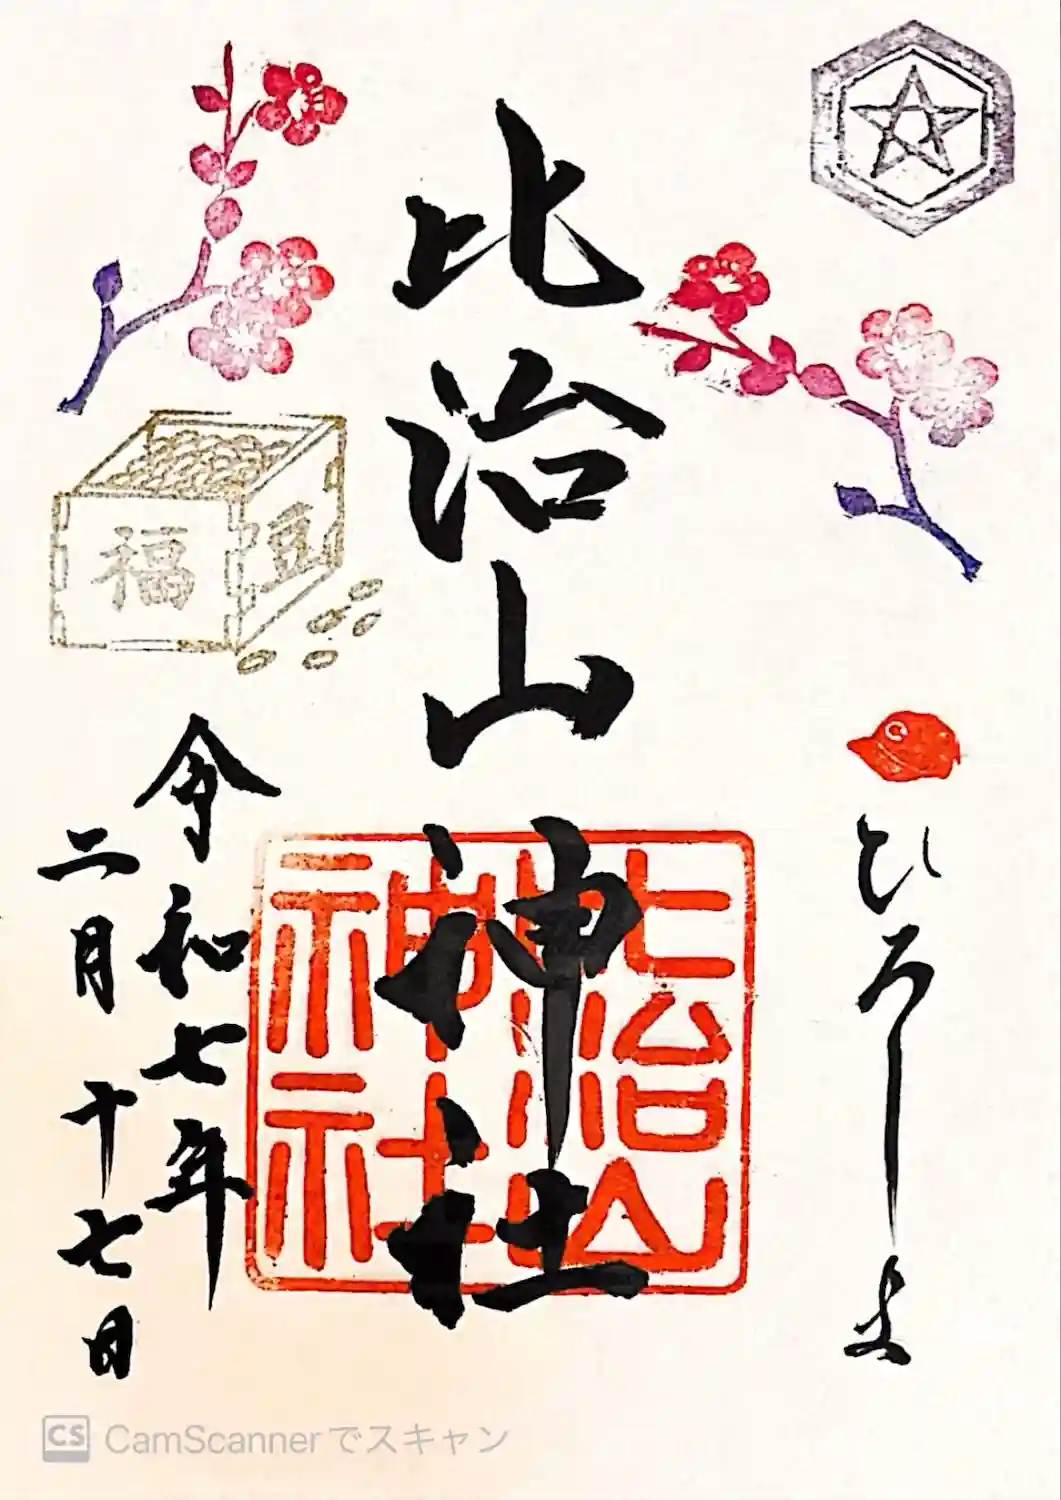 比治山神社
ひろしま
令和七年
二月十七日
福
豆
比治山
神社
C
CS CamScannerでスキャン